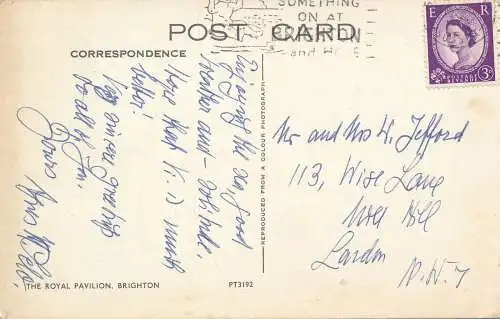 SOMETHING
ON AT
BRIGHTON
and H
POST CARD
CORRESPONDENCE
Enjoying the sea, good
weather and
Hope that is much
better!
Very sincere greetings
to all of you.
Yours
REPRODUCED FROM A COLOUR PHOTOGRAPH
E R
POSTAGE
REVENUE
3D
Mr and Mrs W. Jefford
113, Wise Lane
Mill Hill
London
N.W.7
THE ROYAL PAVILION, BRIGHTON
PT3192